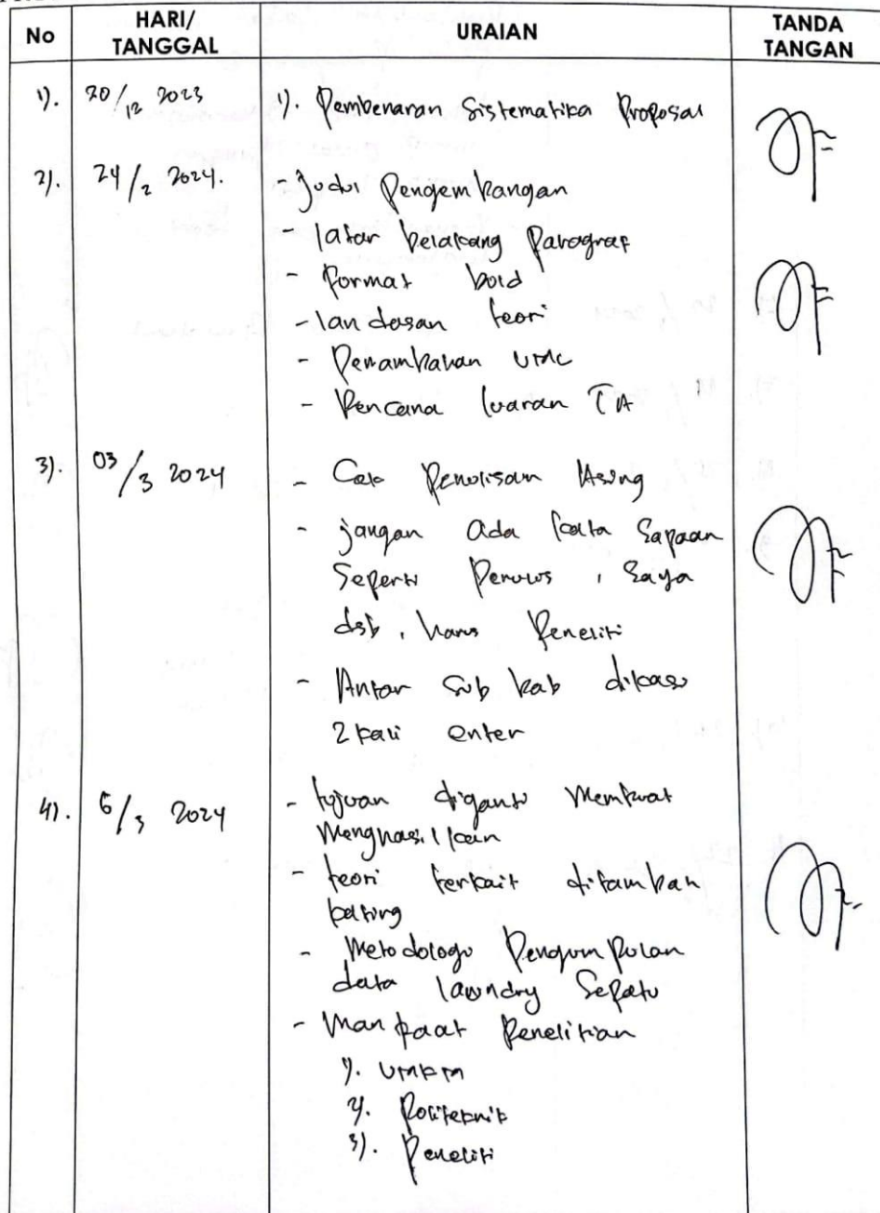 No HARI/ TANGGAL URAIAN TANDA TANGAN
1). 20/12 2023 1). Pembenaran Sistematika Proposal
2). 24/2 2024. - judul Pengembangan
- latar belakang Paragraf
- format bold
- landasan teori
- Penambahan UML
- Rencana luaran TA
3). 03/3 2024 - Penulisan Asing
- jangan Ada kata Sapaan
Seperti Penulis, Saya
dsb, harus Peneliti
- Antar Sub bab dikasi
2 kali enter
4). 6/3 2024 - tujuan diganti Membuat
Menghasilkan
- teori terkait ditambah
- Metodologi Pengumpulan
data laundry Sepatu
- Manfaat Penelitian
1). UMKM
2). Politeknik
3). Peneliti